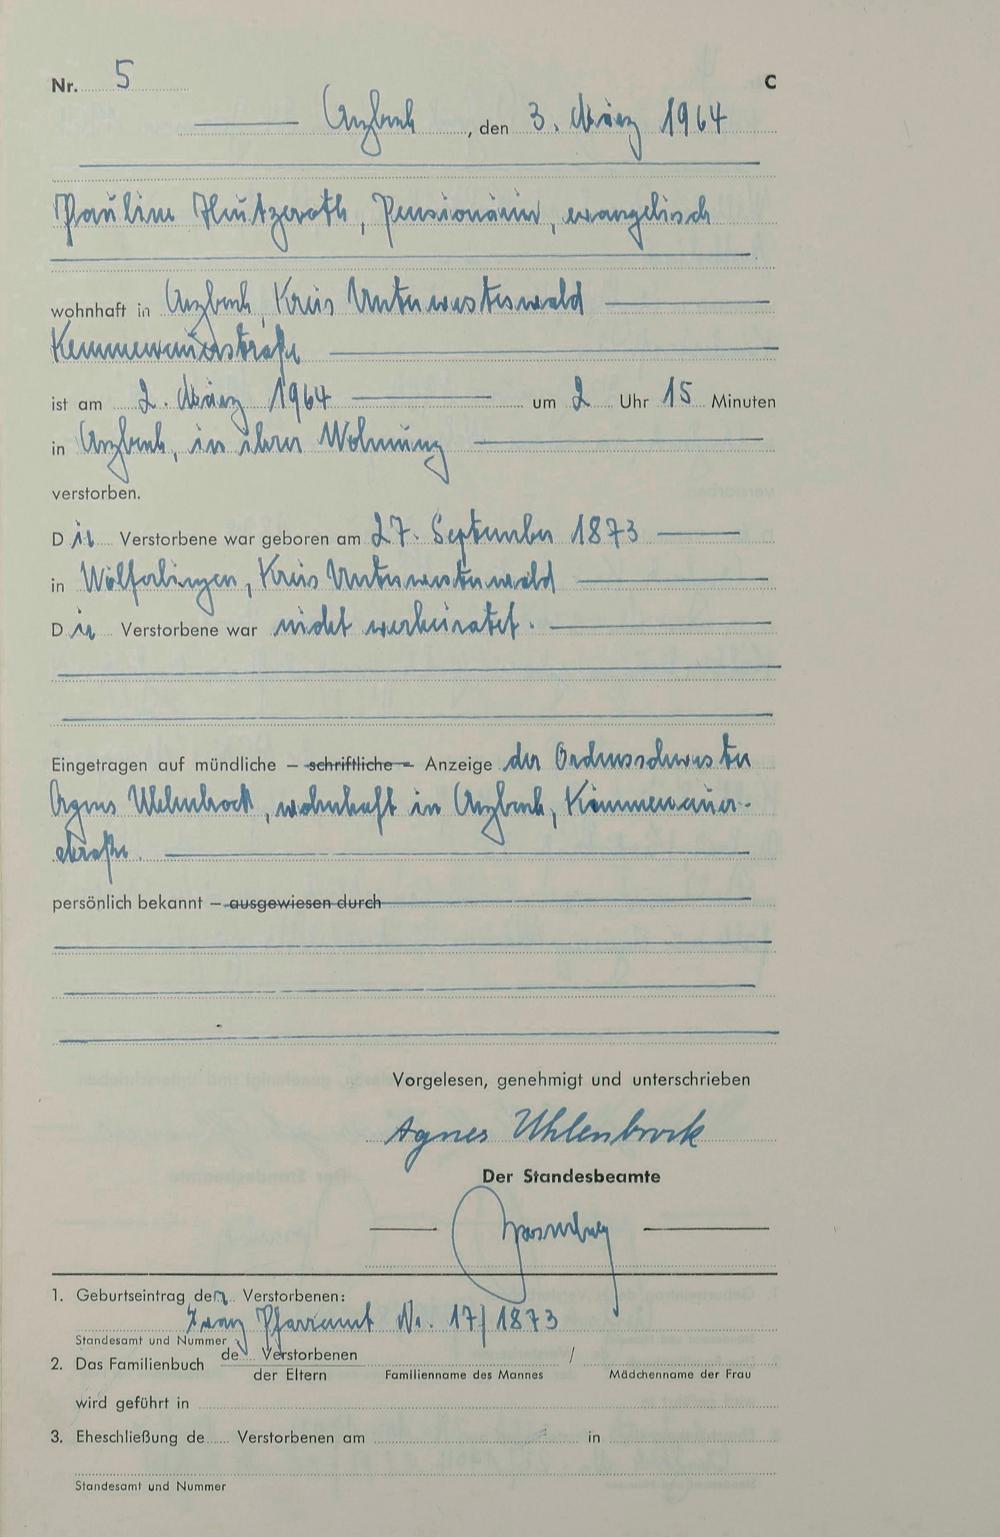 Nr. 5 C
Arzbach, den 3. März 1964
Pauline Hutzeroth, Pensionärin, evangelisch
wohnhaft in Arzbach, Kreis Unterwesterwald
Kemmenauerstraße
ist am 2. März 1964 um 2 Uhr 15 Minuten
in Arzbach, in ihrer Wohnung
verstorben.
Die Verstorbene war geboren am 27. September 1873
in Wölferlingen, Kreis Unterwesterwald
Die Verstorbene war nicht verheiratet.
Eingetragen auf mündliche – schriftliche – Anzeige der Ordensschwester
Agnes Uhlenbrock, wohnhaft in Arzbach, Kemmenauer-
straße.
persönlich bekannt – ausgewiesen durch
Vorgelesen, genehmigt und unterschrieben
Agnes Uhlenbrock
Der Standesbeamte
1. Geburtseintrag der Verstorbenen:
Pfarramt Nr. 17/1873
Standesamt und Nummer
2. Das Familienbuch de Verstorbenen /
der Eltern Familienname des Mannes Mädchenname der Frau
wird geführt in
3. Eheschließung de Verstorbenen am in
Standesamt und Nummer